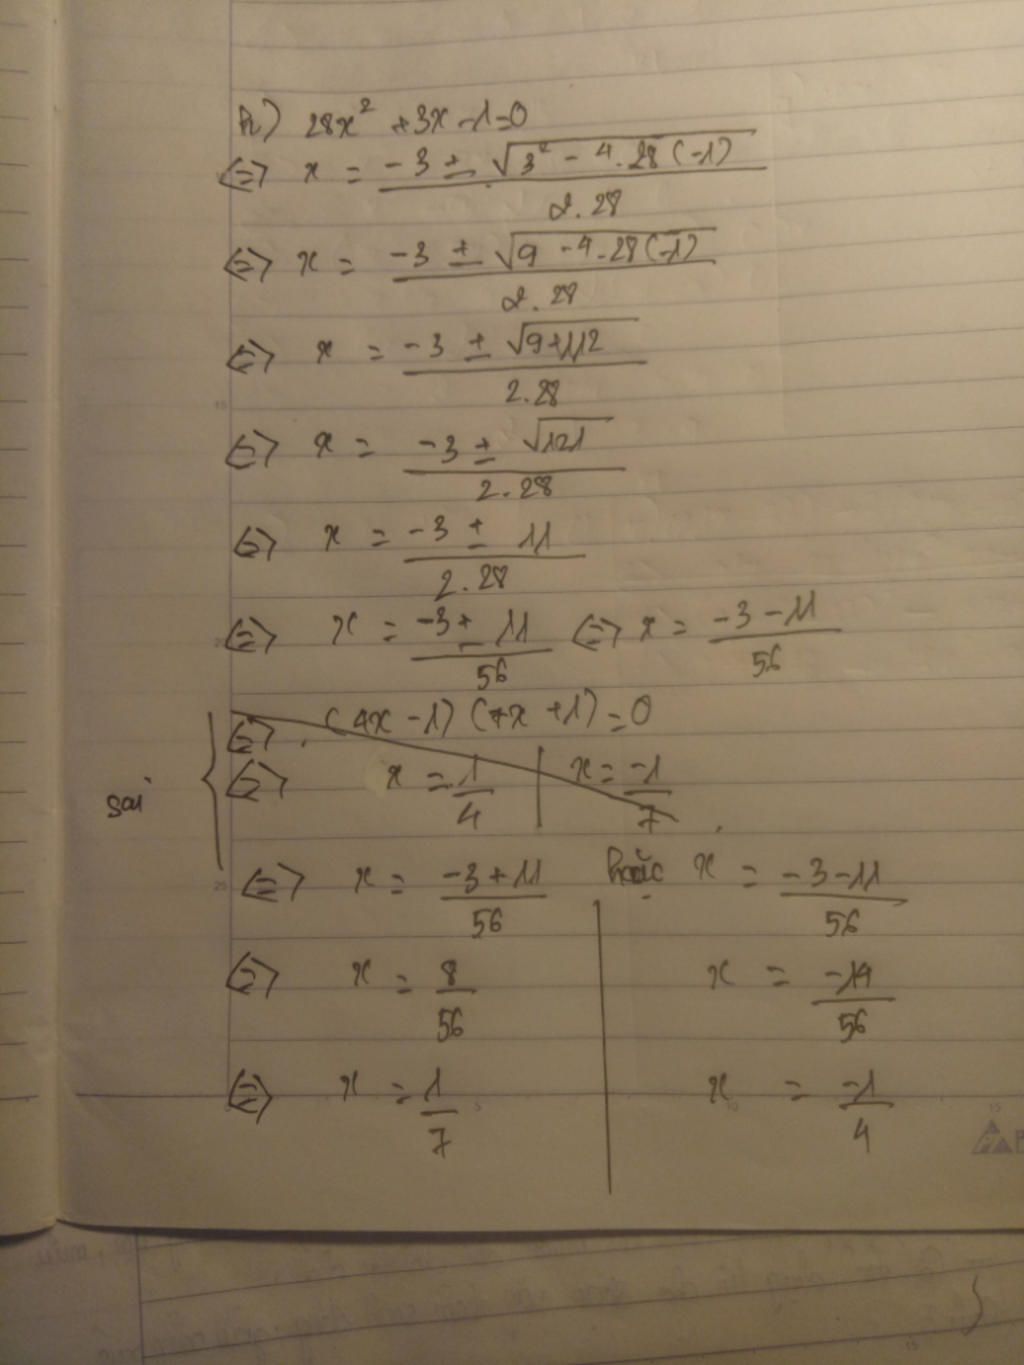 h) 28x² + 3x - 1 = 0
<=> x = (-3 ± √(3² - 4.28(-1))) / 2.28
<=> x = (-3 ± √(9 - 4.28(-1))) / 2.28
<=> x = (-3 ± √(9+112)) / 2.28
<=> x = (-3 ± √121) / 2.28
<=> x = (-3 ± 11) / 2.28
<=> x = (-3 ± 11) / 56 <=> x = (-3 - 11) / 56
<=> (4x - 1)(7x + 1) = 0
sai <=> x = 1/4 | x = -1/7
<=> x = (-3 + 11) / 56 hoặc x = (-3 - 11) / 56
<=> x = 8/56 | x = -14/56
<=> x = 1/7 | x = -1/4